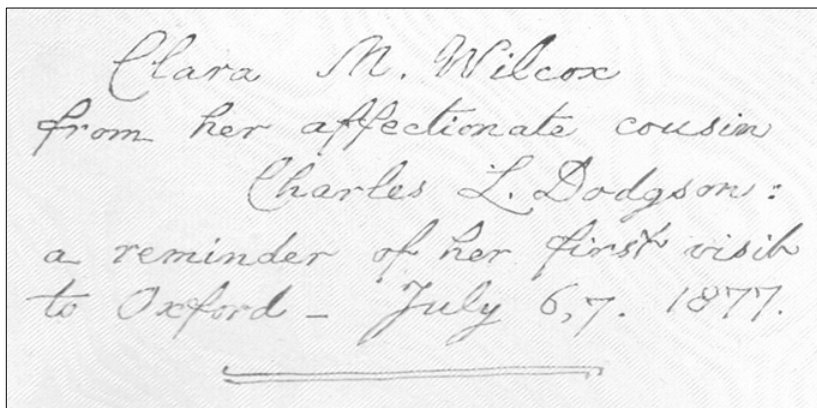 Clara M. Wilcox
from her affectionate cousin
Charles L. Dodgson:
a reminder of her first visit
to Oxford – July 6,7. 1877.